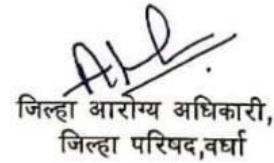 जिल्हा आरोग्य अधिकारी,
जिल्हा परिषद,वर्धा